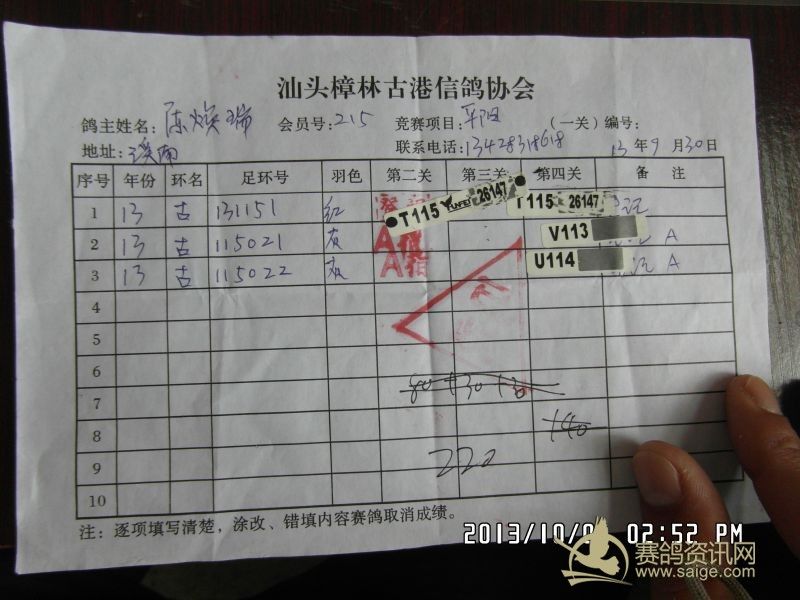 汕头樟林古港信鸽协会
鸽主姓名：陈焕瑞 会员号：215 竞赛项目：平阳 （一关）编号：
地址：溪南 联系电话：13428318618 13年9月30日
序号 年份 环名 足环号 羽色 第二关 第三关 第四关 备 注
1 13 古 131151 红 T115 26147 T115 26147
2 13 古 115021 灰 V113 A
3 13 古 115022 U114 A
4
5
6
7 80+30+30
8 140
9 220
10
注：逐项填写清楚，涂改、错填内容赛鸽取消成绩。
2013/10/ 02:52 PM
赛鸽资讯网
www.saige.com